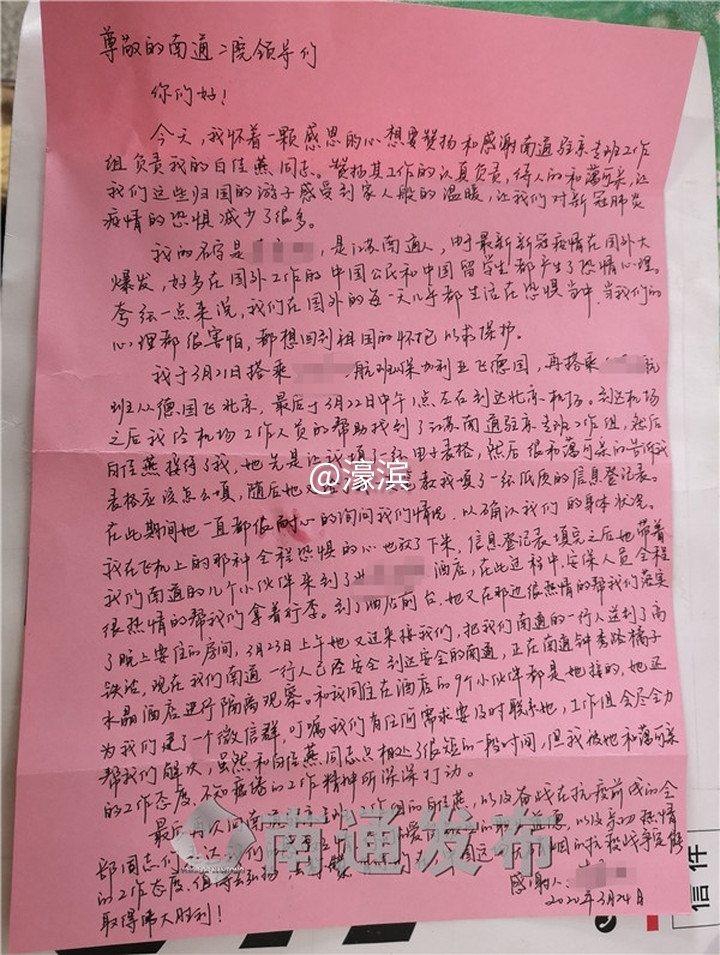 尊敬的南通二院领导们
你们好！
今天，我怀着一颗感恩的心想要赞扬和感谢南通驻京专班工作
组负责我的白佳燕同志。赞扬其工作的认真负责，待人的和蔼可亲，让
我们这些归国的游子感受到家人般的温暖，让我们对新冠肺炎
疫情的恐惧减少了很多。
我的名字是，是江苏南通人，由于最新新冠疫情在国外大
爆发，好多在国外工作的中国公民和中国留学生都产生了恐惧心理。
夸张一点来说，我们在国外的每一天几乎都生活在恐惧当中，当我们的
心理都很害怕，都想回到祖国的怀抱以求保护。
我于3月21日搭乘航班从保加利亚飞德国，再搭乘航
班从德国飞北京，最后于3月22日中午1点左右到达北京机场。到达机场
之后我经机场工作人员的帮助找到了江苏南通驻京专班工作组，然后
白佳燕接待了我，她先是让我填了一张电子表格，然后很和蔼可亲的告诉我
表格应该怎么填，随后她又教我填了一张纸质的信息登记表。
@濠滨
在此期间她一直都很耐心的询问我们情况，以确认我们的身体状况。
我在飞机上的那种全程恐惧的心也放了下来，信息登记表填完之后她带着
我们南通的几个小伙伴来到了酒店，在此过程中，安保人员全程
很热情的帮我们拿着行李。到了酒店前台，她又在那边很热情的帮我们落实
了晚上要住的房间，3月23日上午她又过来接我们，把我们南通的一行人送到了高
铁站，现在我们南通一行人已经安全到达安全的南通，正在南通钟秀路橘子
水晶酒店进行隔离观察。和我同住在酒店的9个小伙伴都是她接的，她还
为我们建了一个微信群，叮嘱我们有任何需求要及时联系她，工作组会尽全力
帮我们解决，虽然和白佳燕同志只相处了很短的一段时间，但我被她和蔼可亲
的工作态度、不知疲倦的工作精神所深深打动。
最后再次向南通驻京专班工作组的白佳燕，以及奋战在抗疫前线的全
南通发布
部同志们
的工作态度，值得去弘扬，的抗疫战争定能
取得伟大胜利！
感谢人：
2020年3月24日
信件